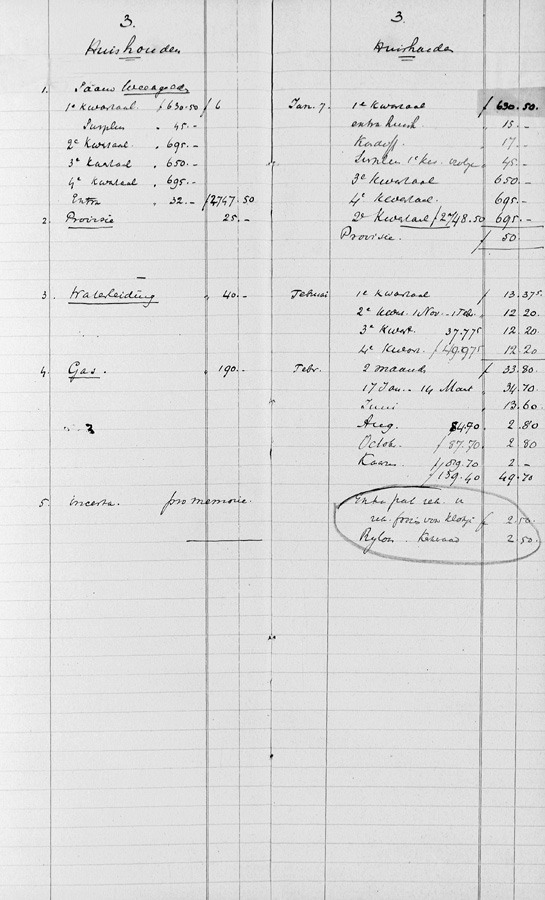 3.
Huishouden
1.
1e Kwartaal f 630.50 f 6
Surplus " 45.-
2e Kwartaal " 695.-
3e Kwartaal " 650.-
4e Kwartaal " 695.-
Extra " 32.- f 2747.50
2. Provisie 25.-
3. Waterleiding " 40.-
4. Gas. " 190.-
5. incerta. pro memorie.
3.
Huishouden
Jan. 7. 1e Kwartaal f 630.50.
extra " 15.-
" 17.-
Surplus 1e Kw. " 45.-
3e Kwartaal 650.-
4e Kwartaal. 695.-
2e Kwartaal f 2748.50 695.-
Provisie. f 50.
Februari 1e Kwartaal f 13.375
2e Kwar. 1 Nov. - 1 Feb. " 12.20
3e Kwart. 37.775 " 12.20
4e Kwart. f 49.975 12.20
Febr. 2 maand f 33.80
17 Jan. - 14 Maart " 34.70
Juni " 13.60
Aug. 84.90 " 2.80
Octob. f 87.70 " 2.80
f 89.70 2.-
f 139.40 49.70
Extra
f 2.50.
2.50.